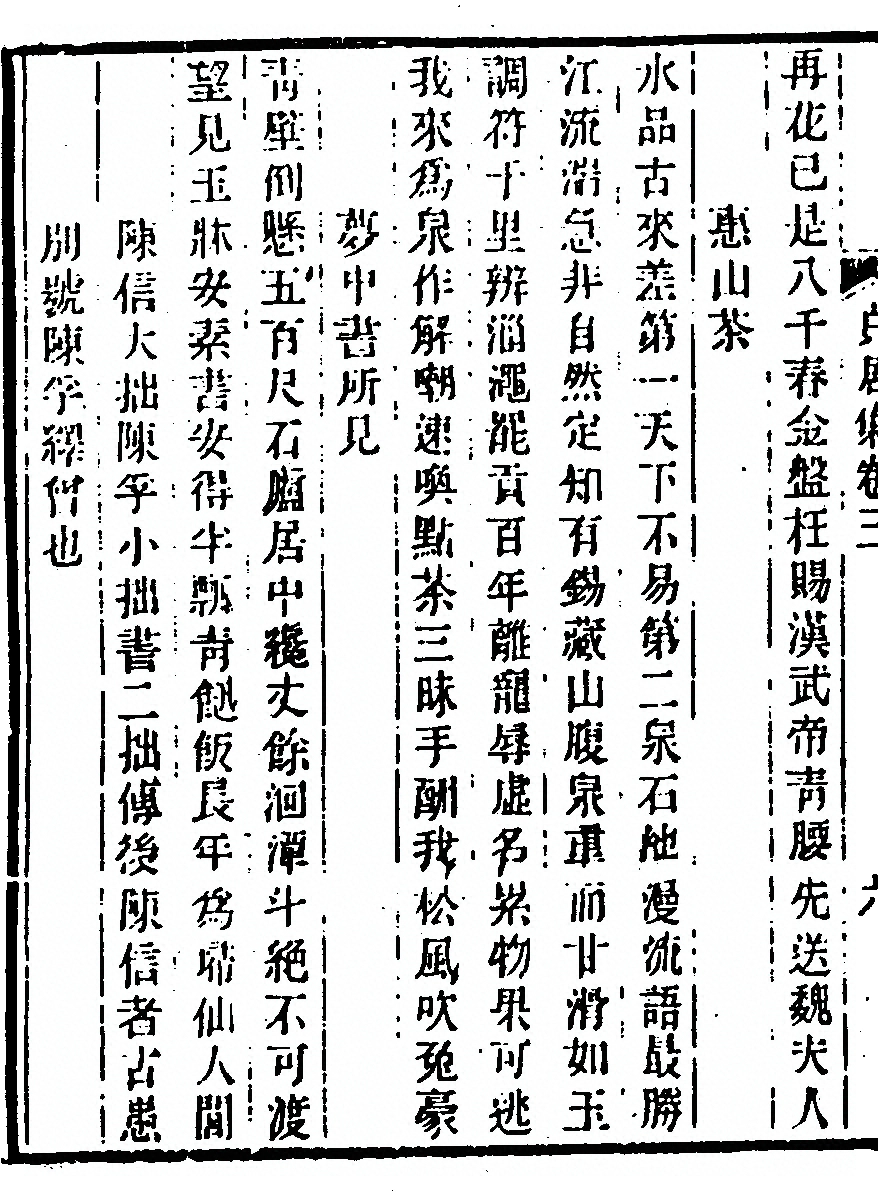 貞居集卷三 六
再花已是八千春金盤枉賜漢武帝青腰先送魏夫人
惠山茶
水品古來差第一天下不易第二泉石池漫流語最勝
江流湍急非自然定知有錫藏山腹泉重而甘滑如玉
調符千里辨淄澠罷貢百年離寵辱虛名累物果可逃
我來爲泉作解嘲速喚點茶三昧手酬我松風吹兔豪
夢中書所見
青壁倒懸五百尺石廬居中纔丈餘洄潭斗絕不可渡
望見玉牀安素書安得半瓢青飿飯長年爲歸仙人閒
陳信大拙陳孚小拙書二拙傳後陳信者古愚
別號陳孚繹也